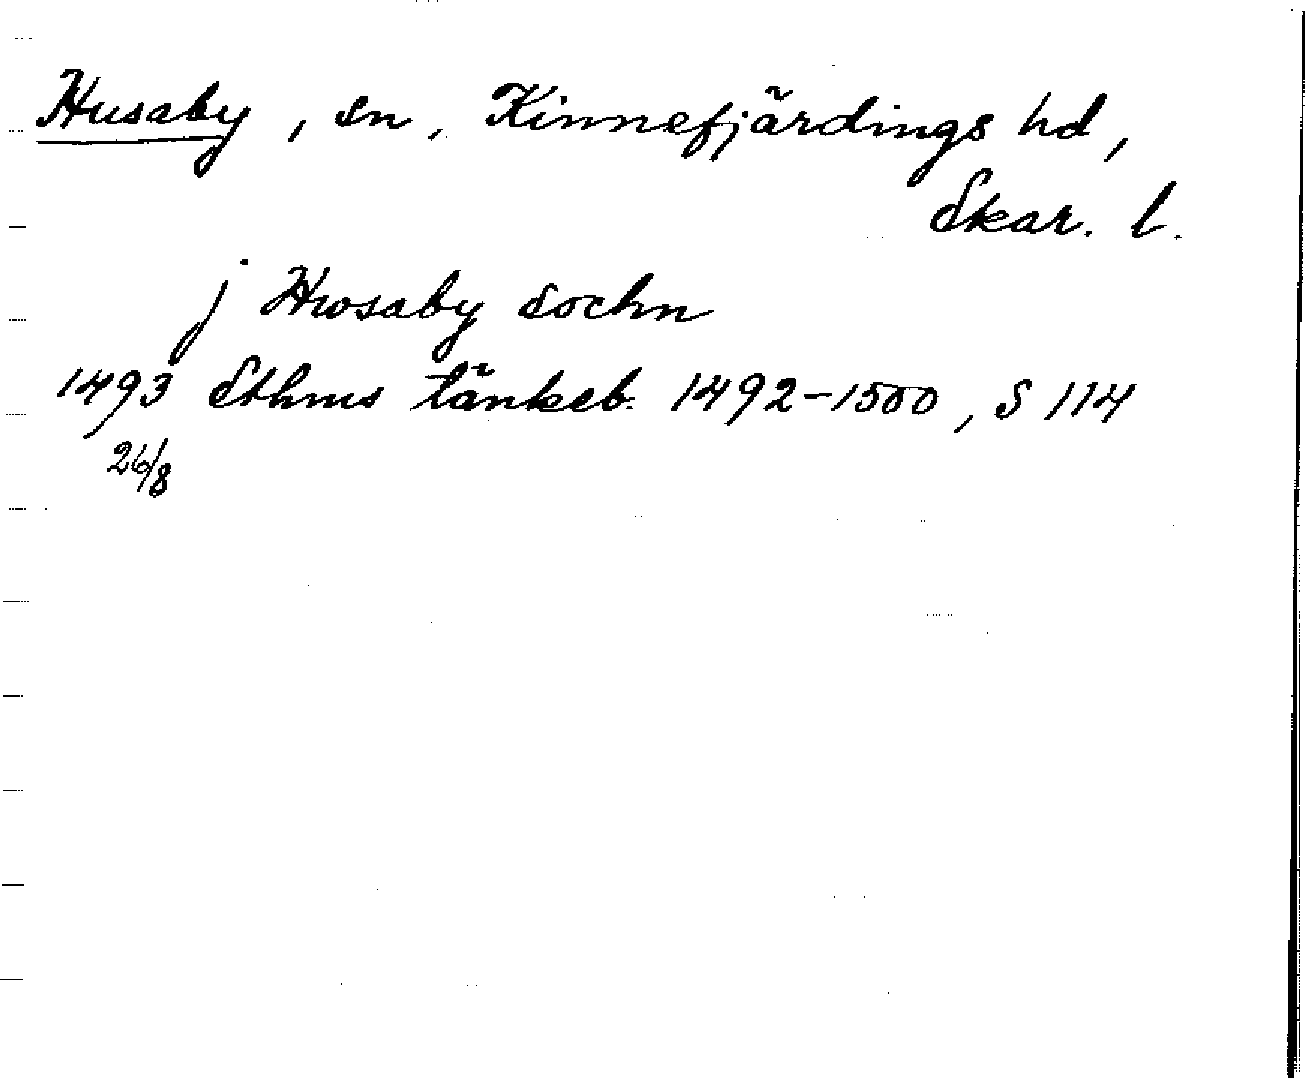 Husaby, sn, Kinnefjärdings hd,
Skar. l.
j Hwsaby sochn
1493 Sthms tänkeb. 1492-1500, S 114
26/8